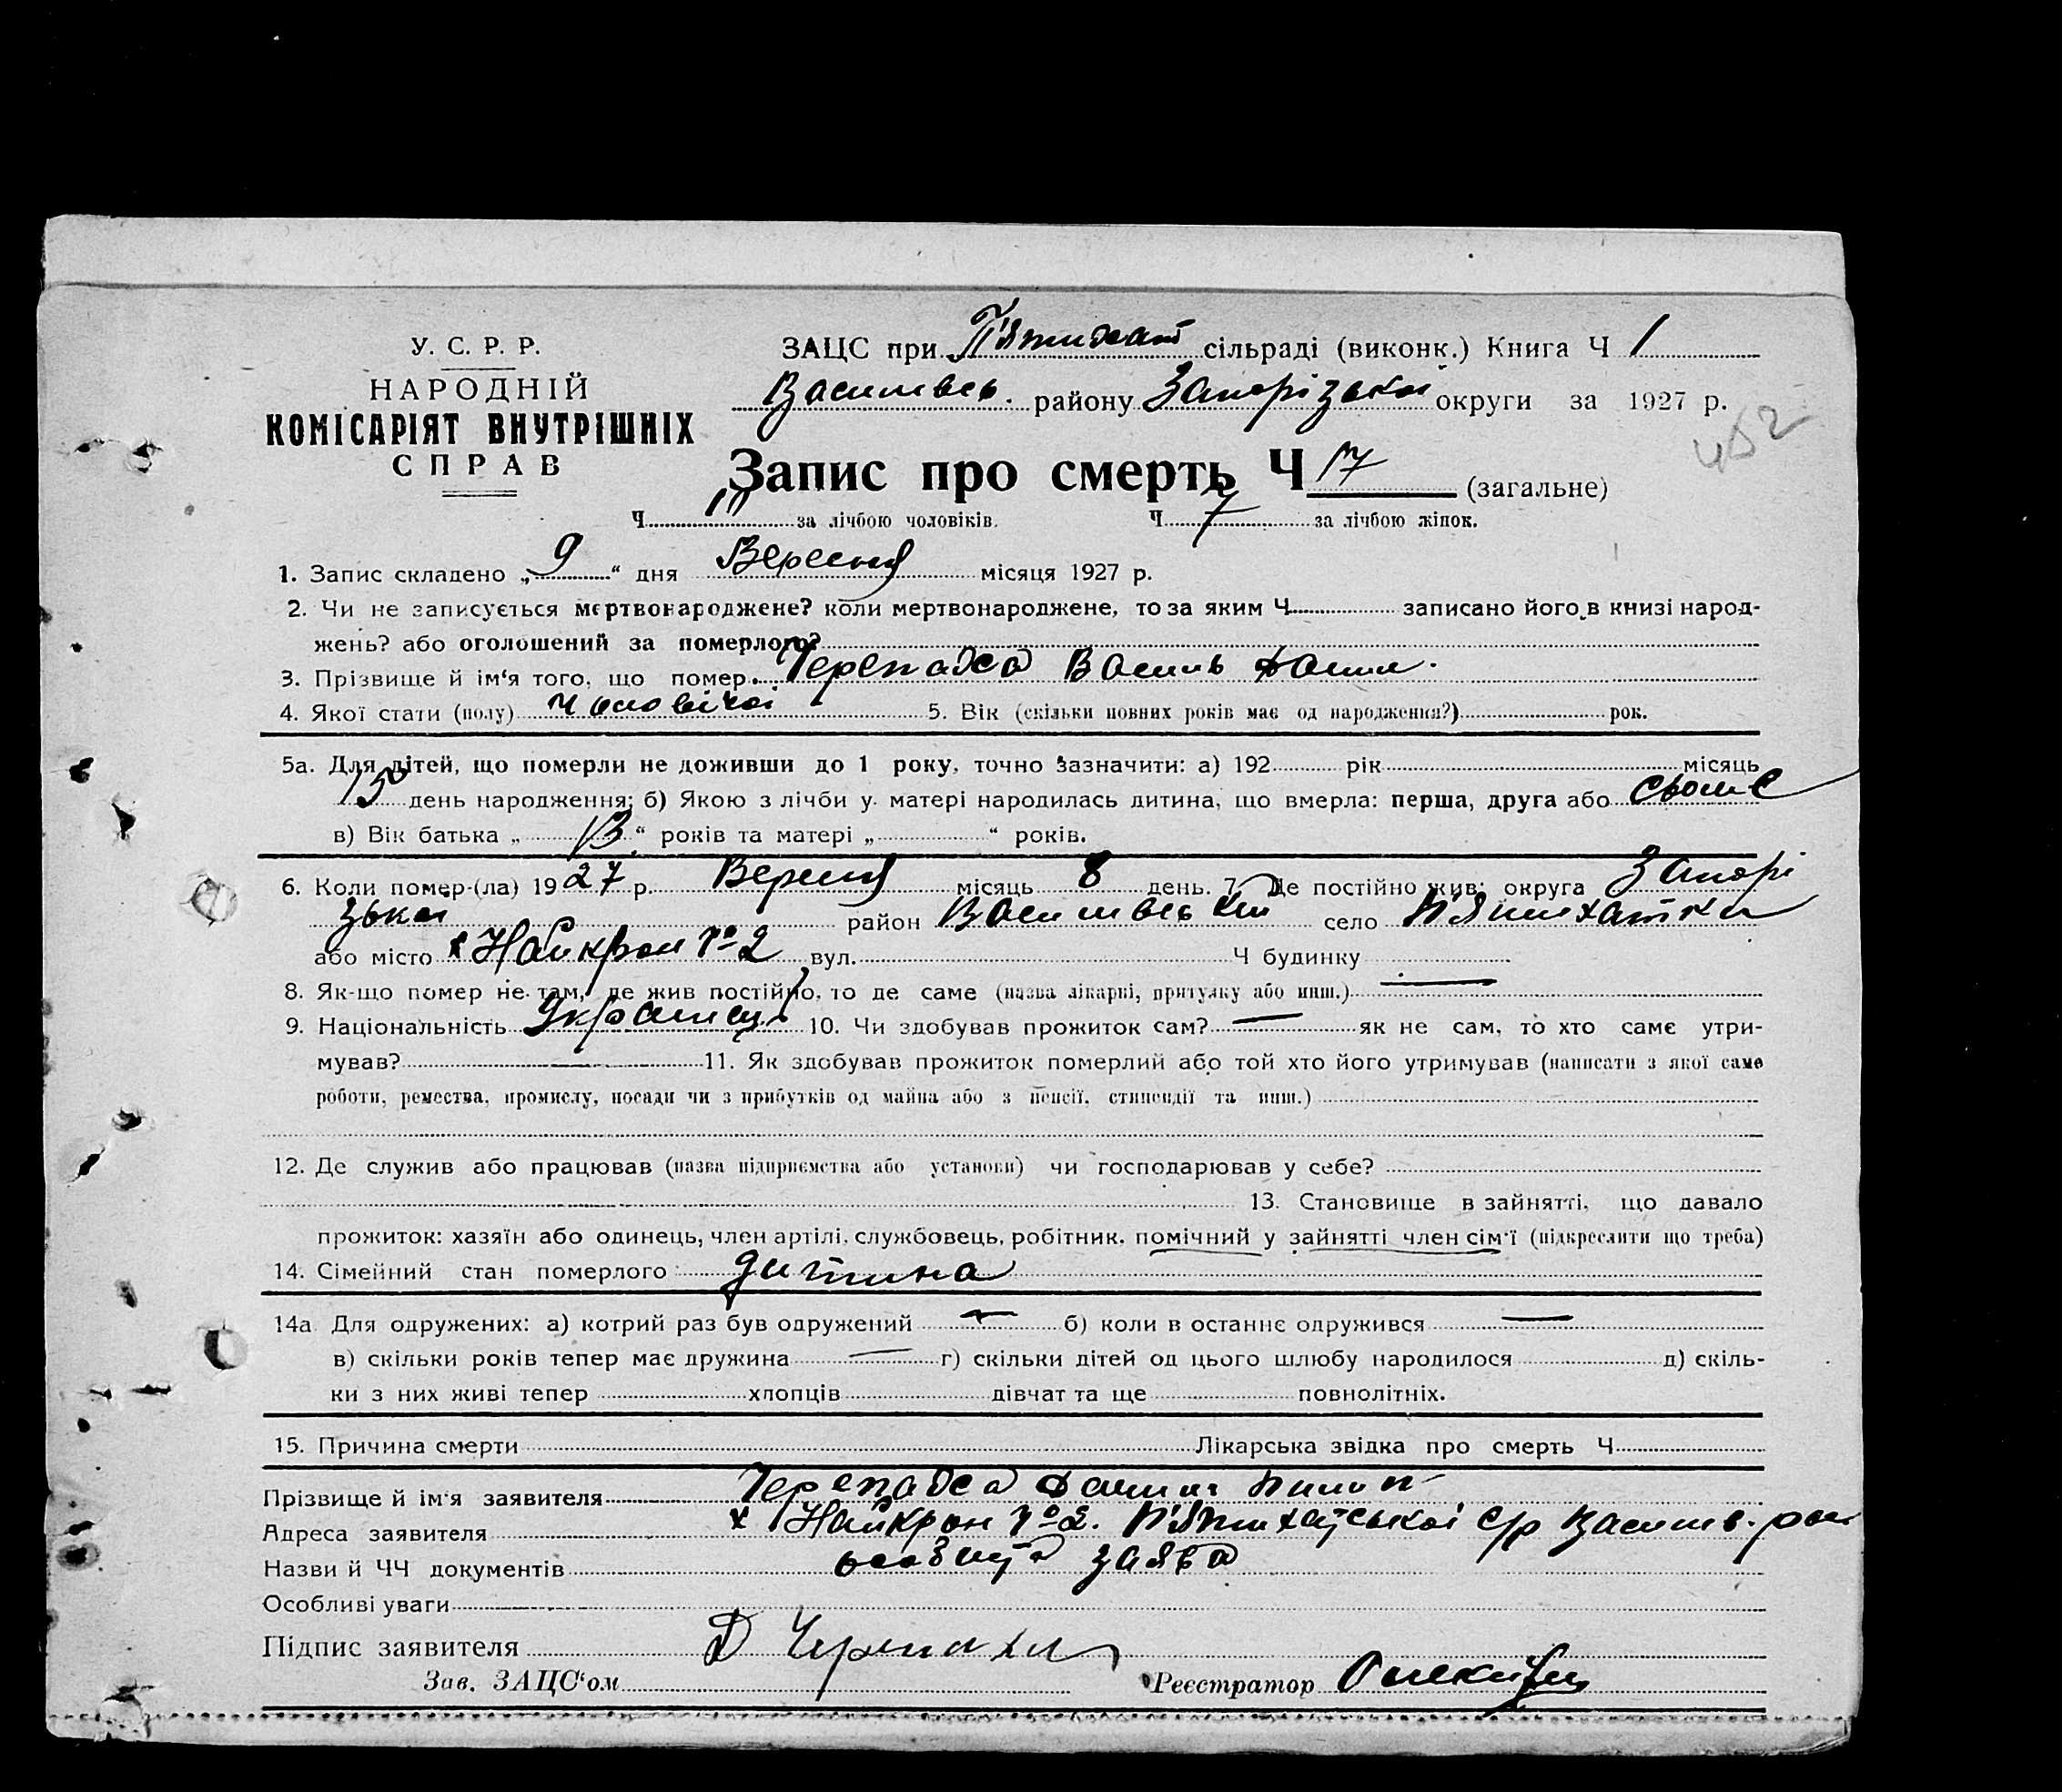 У. С. Р. Р.
НАРОДНІЙ
КОМІСАРІЯТ ВНУТРІШНІХ
СПРАВ
ЗАЦС при П'ятихат сільраді (виконк.) Книга Ч 1
Василівсь. району Запорізької округи за 1927 р.
452
Запис про смерть Ч 17 (загальне)
Ч за лічбою чоловіків. Ч 7 за лічбою жінок.
1. Запис складено „ 9 “ дня Вересня місяця 1927 р.
2. Чи не записується мертвонароджене? коли мертвонароджене, то за яким Ч записано його в книзі народ-
жень? або оголошений за померлого?
3. Прізвище й ім'я того, що помер Черепаха Василь Данил.
4. Якої стати (полу) чоловічої 5. Вік (скільки повних років має од народження?) рок.
5а. Для дітей, що померли не доживши до 1 року, точно зазначити: а) 192 рік місяць
15 день народження; б) Якою з лічби у матері народилась дитина, що вмерла: перша, друга або
в) Вік батька „ “ років та матері „ “ років.
6. Коли помер-(ла) 1927 р. Вересня місяць 8 день. 7. Де постійно жив: округа Запорі
зької район Василівський село П'ятихатки
або місто х Найкрон № 2 вул. Ч будинку
8. Як-що помер не там, де жив постійно, то де саме (назва лікарні, притулку або инш.) —
9. Національність Українець 10. Чи здобував прожиток сам? — як не сам, то хто саме утри-
мував? 11. Як здобував прожиток померлий або той хто його утримував (написати з якої саме
роботи, ремества, промислу, посади чи з прибутків од майна або з пенсії, стипендії та инш.)
12. Де служив або працював (назва підприємства або установи) чи господарював у себе?
13. Становище в зайнятті, що давало
прожиток: хазяїн або одинець, член артілі, службовець, робітник, помічний у зайнятті член сім'ї (підкреслити що треба)
14. Сімейний стан померлого дитина
14а Для одружених: а) котрий раз був одружений — б) коли в останнє одружився —
в) скільки років тепер має дружина — г) скільки дітей од цього шлюбу народилося д) скіль-
ки з них живі тепер хлопців дівчат та ще повнолітніх.
15. Причина смерти Лікарська звідка про смерть Ч
Прізвище й ім'я заявителя Черепаха Данил Пилип
Адреса заявителя х Найкрон № 2. П'ятихатської с/р Василів. рай
Назви й ЧЧ документів особиста заява
Особливі уваги
Підпис заявителя Д Черепаха
Зав. ЗАЦС'ом Реєстратор